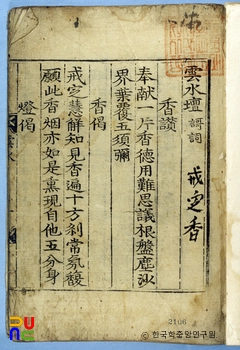 雲水壇謌詞
戒定香
香讃
奉献一片香德用難思議根盤塵沙
界葉覆五須彌
香偈
戒定慧解知見香遍十方刹常氛馥
願此香烟亦如是熏現自他五分身
燈偈
2106
한국학중앙연구원